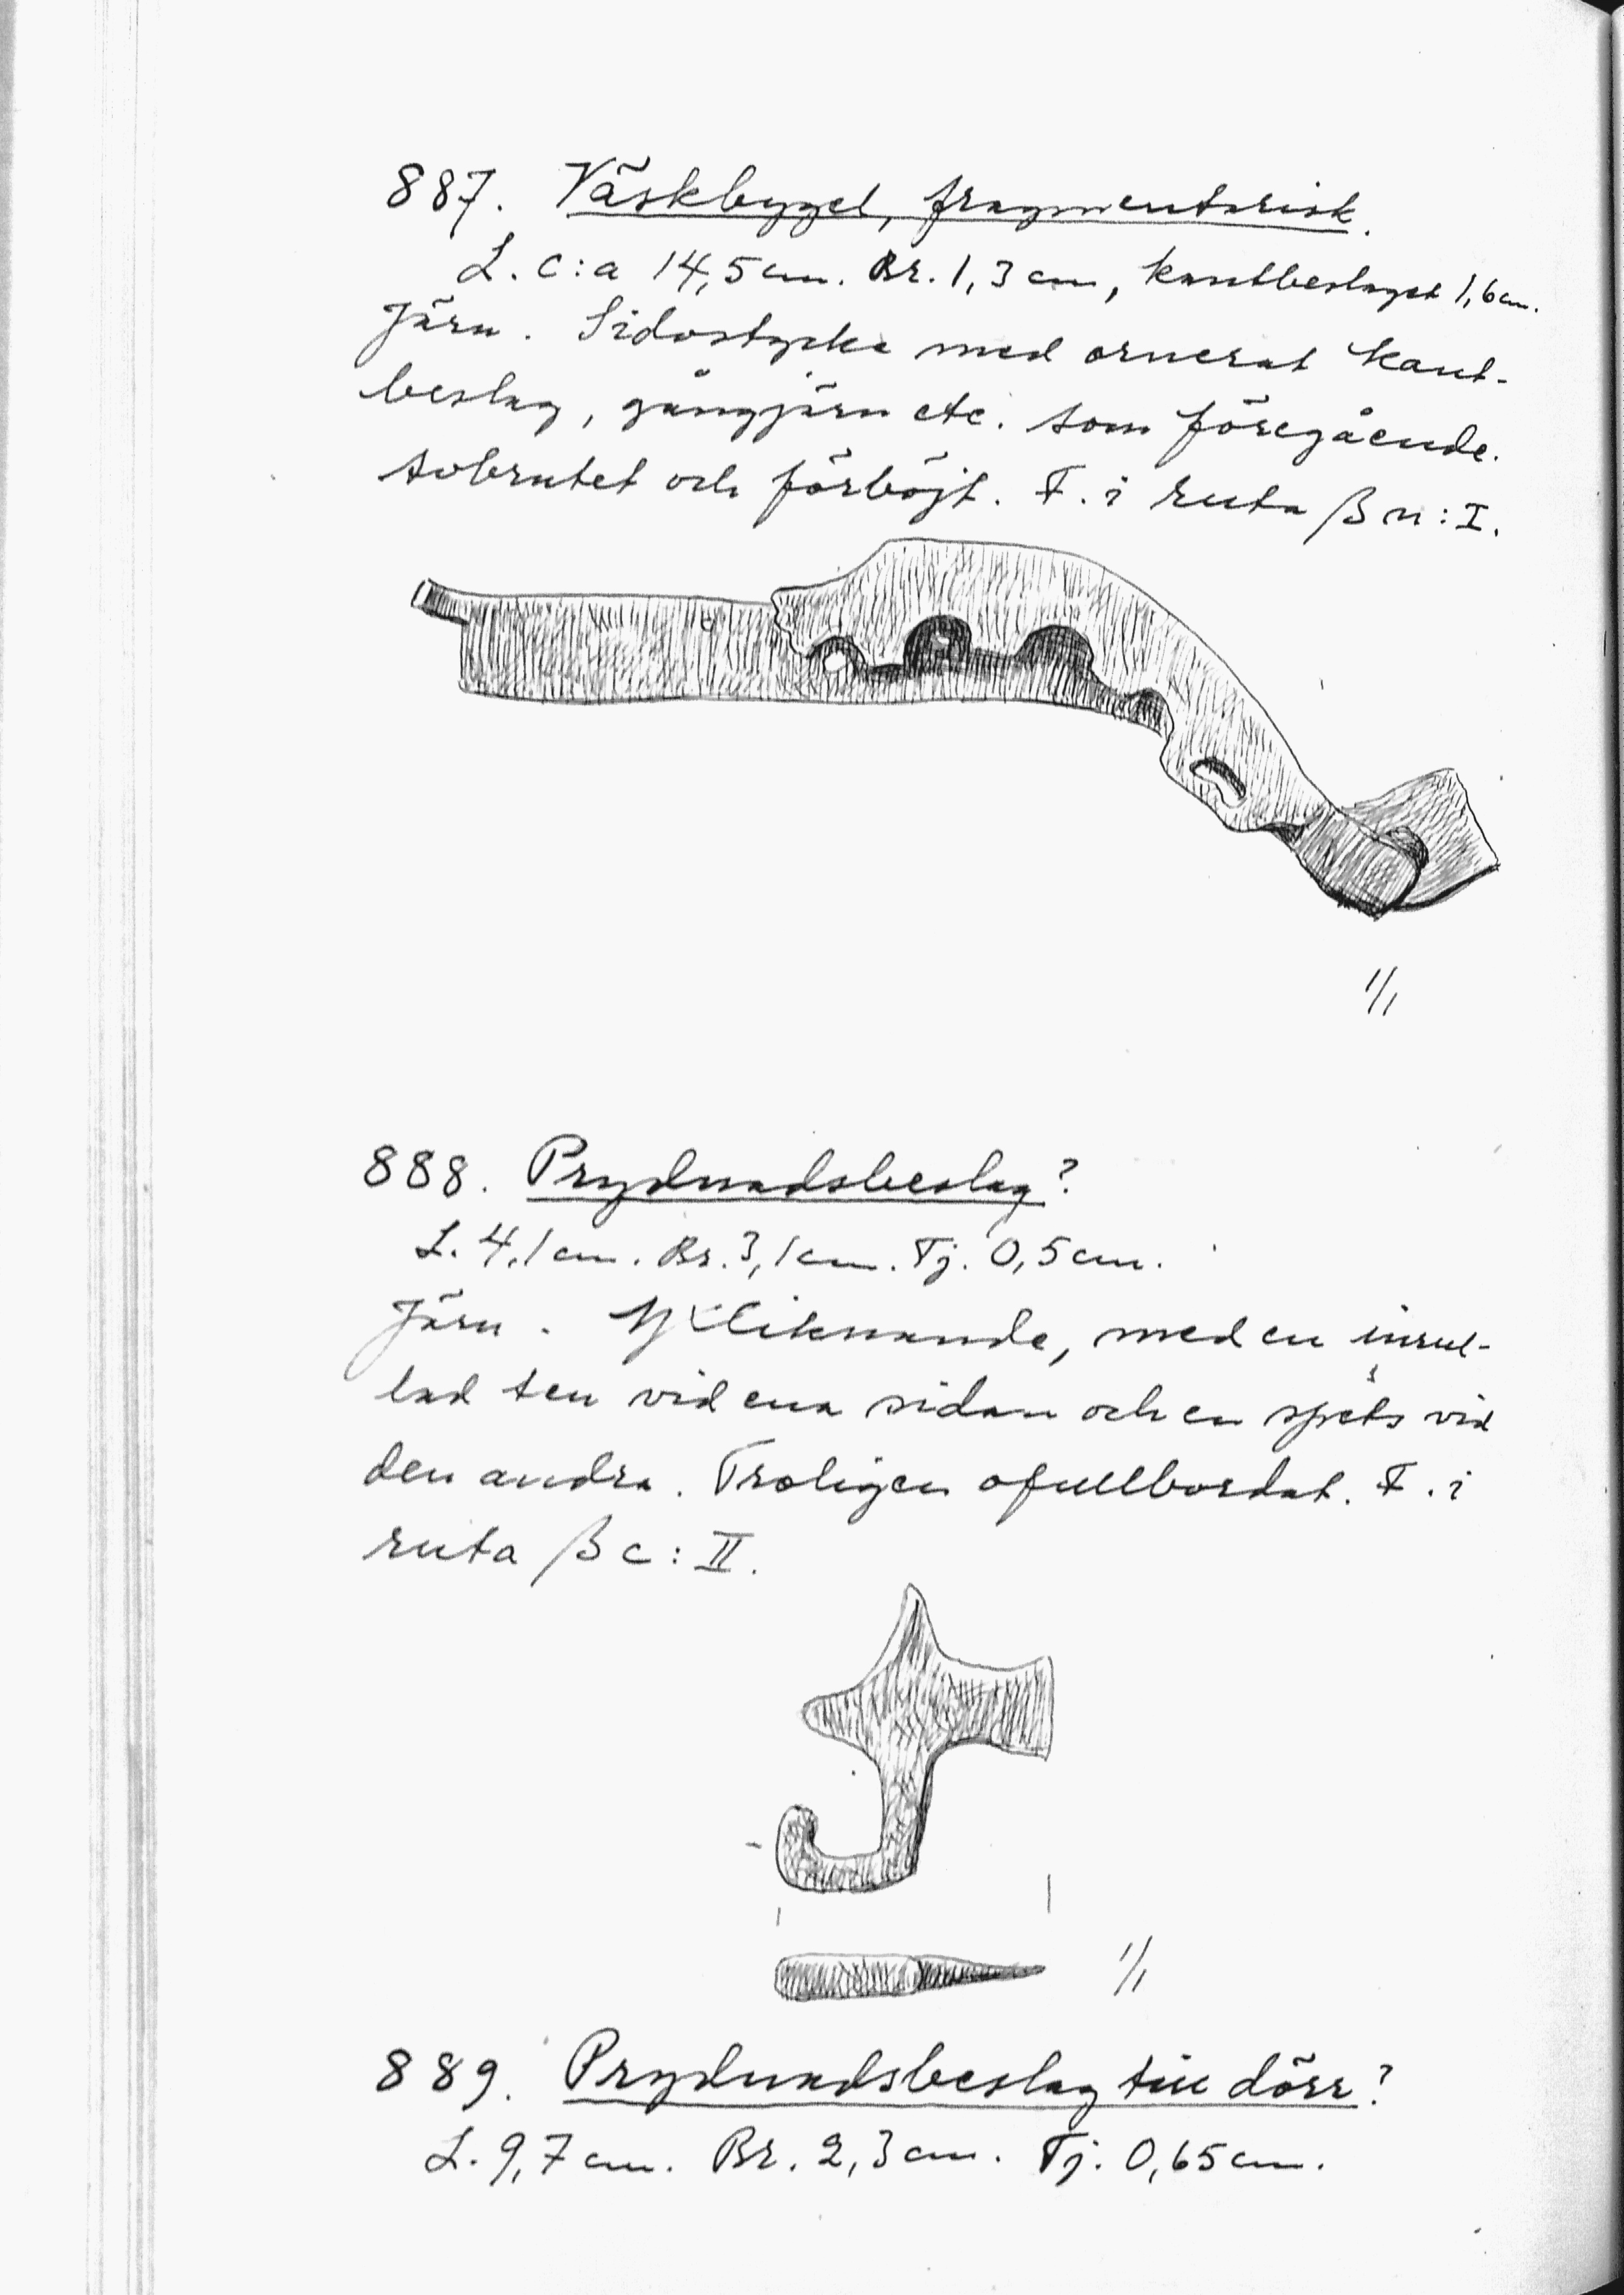 887. Väskbygel, fragmentarisk.
L. c:a 14,5 cm. Br. 1,3 cm, kantbeslaget 1,6 cm.
Järn. Sidostycke med ornerat kant-
beslag, gångjärn etc. som föregående.
Avbrutet och förböjt. F. i ruta β n:I.
1/1
888. Prydnadsbeslag?
L. 4,1 cm. Br. 3,1 cm. Tj. 0,5 cm.
Järn. liknande, med en inrul-
lad ten vid ena sidan och en spets vid
den andra. Troligen ofullbordat. F. i
ruta β c:II.
1/1
889. Prydnadsbeslag till dörr?
L. 9,7 cm. Br. 2,3 cm. Tj. 0,65 cm.